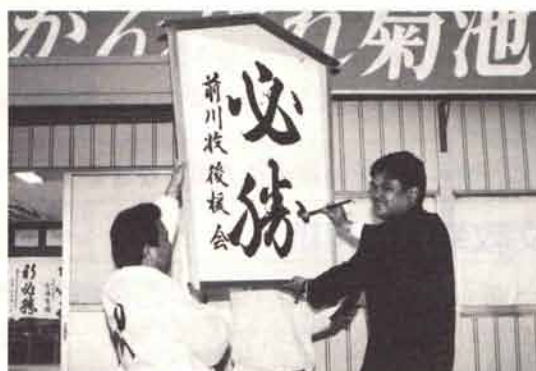 がんばれ菊池
必勝
前川牧後援会
必勝